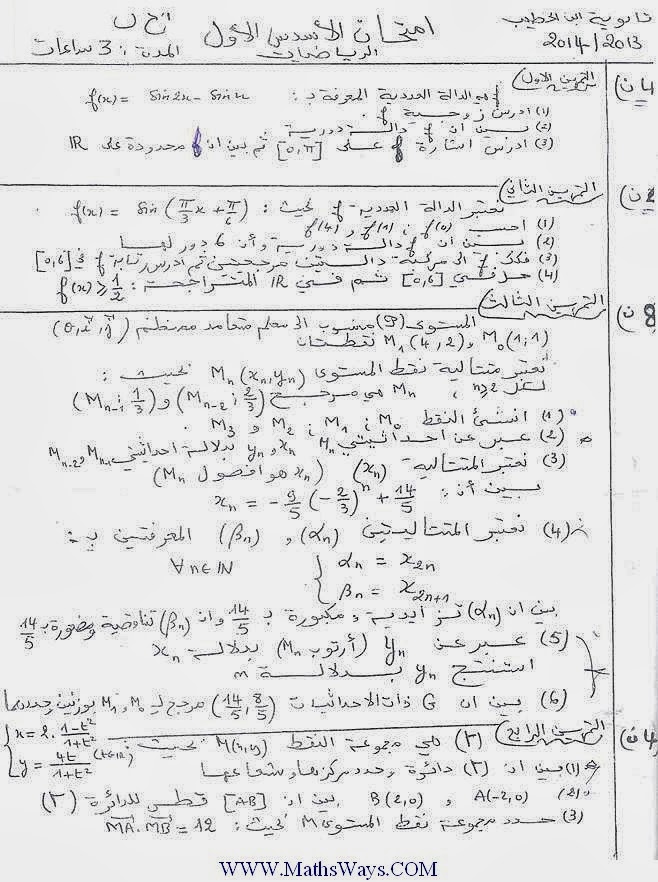 ثانوية ابن الخطيب
2014/2013
امتحان الأسدس الأول
الرياضيات
المدة : 3 ساعات
التمرين الأول
4ن
f هي الدالة العددية المعرفة بـ : f(x) = sin2x - sinx
(1) ادرس زوجية f .
(2) بين أن f دالة دورية
(3) ادرس إشارة f على [0,π] ثم بين أن f محدودة على IR
التمرين الثاني
نعتبر الدالة العددية f بحيث : f(x) = sin(π/3 x + π/6)
(1) احسب f(0) ; f(1) و f(4)
(2) بين أن f دالة دورية وأن 6 دور لها
(3) فكك f الى مركبة دالتين مرجعيتين ثم ادرس رتابة f في [0,6]
(4) حل في [0,6] ثم في IR المتراجحة : f(x) ≥ 1/2
التمرين الثالث
8ن
المستوى (P) منسوب الى معلم متعامد ممنظم (O,i,j)
M₀(1;1) و M₁(4,2) نقطتان
نعتبر متتالية نقط المستوى Mn(xn,yn) بحيث :
لكل n≥2 ، Mn هي مرجح (Mn-2 ; 2/3) و (Mn-1 ; 1/3)
(1) انشئ النقط M₀ ; M₁ ; M₂ و M₃ .
(2) عبر عن احداثيتي Mn xn و yn بدلالة احداثيتي Mn-1 و Mn-2
(3) نعتبر المتتالية (xn) (xn هو افصول Mn)
بين أن : xn = -9/5 (-2/3)ⁿ + 14/5
(4) نعتبر المتتاليتين (αn) و (βn) المعرفتين بـ :
{ αn = x2n
βn = x2n+1 ∀n∈IN
بين ان (αn) تزايدية و مكبورة بـ 14/5 وان (βn) تناقصية و مصغورة بـ 14/5
(5) عبر عن yn (أرتوب Mn) بدلالة xn
استنتج yn بدلالة n
(6) بين ان G ذات الاحداثيات (14/5, 8/5) مرجح لـ M₀ و M₁ بوزنين حددهما
التمرين الرابع
4ن
(Γ) هي مجموعة النقط M(x,y) بحيث :
{ x = 2. 1-t²/1+t²
y = 4t/1+t² (t∈IR)
(1) بين ان (Γ) دائرة وحدد مركزها وشعاعها
(2) A(-2,0) و B(2,0) بين ان [AB] قطر للدائرة (Γ)
(3) حدد مجموعة نقط المستوى M بحيث : MA.MB = 12
WWW.MathsWays.COM